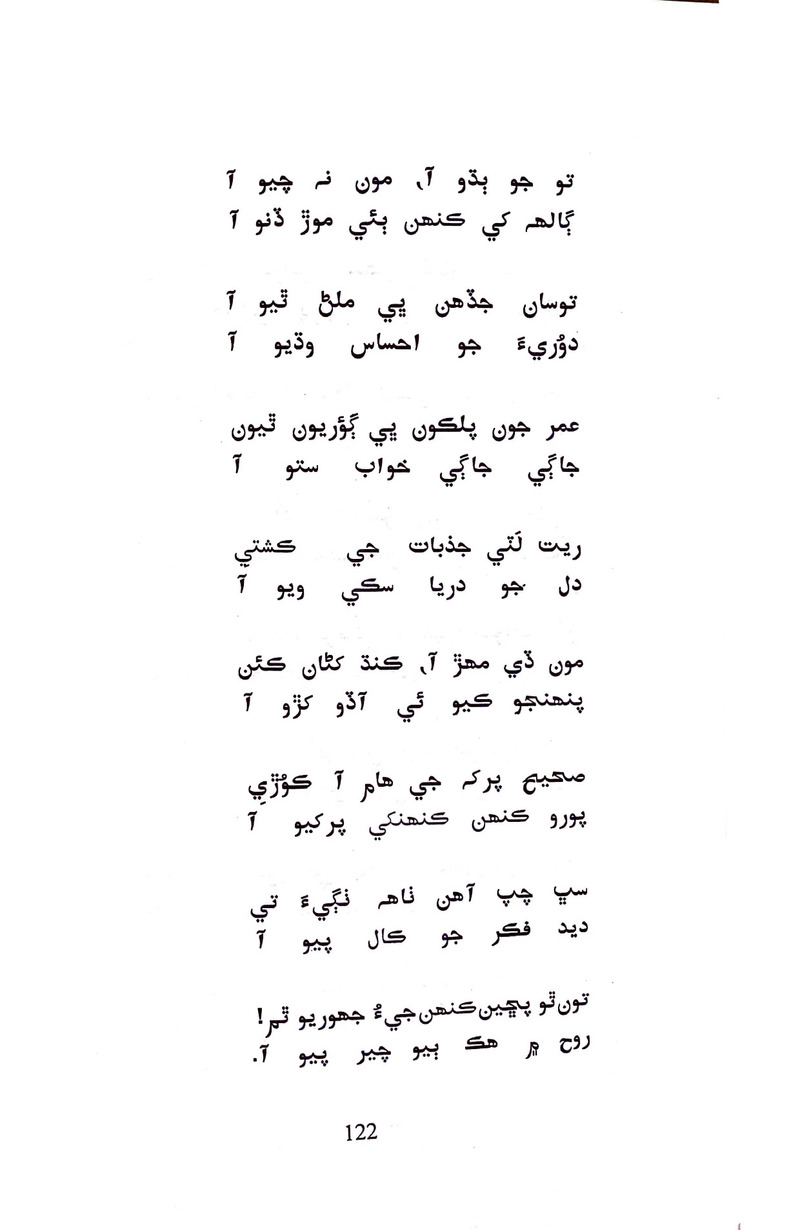 تو جو ٻڌو آ، مون نہ چيو آ
ڳالھہ کي ڪنھن ٻئي موڙ ڏنو آ
توسان جڏھن ڀي ملڻ ٿيو آ
دوُريءَ جو احساس وڌيو آ
عمر جون پلڪون ڀي ڳؤريون ٿيون
جاڳي جاڳي خواب ستو آ
ريت لَٽي جذبات جي ڪشتي
دل جو دريا سڪي ويو آ
مون ڏي مھڙ آ، ڪنڌ کڻان ڪئن
پنھنجو ڪيو ئي آڏو کڙو آ
صحيح پرکہ جي ھام آ ڪوُڙِي
پورو ڪنھن ڪنھنکي پرکيو آ
سڀ چپ آھن ٺاھہ ٺڳيءَ تي
ديد فڪر جو ڪال پيو آ
تون ٿو پڇين ڪنھن جيءُ جھوريو ٿم!
روح ۾ ھڪ ٻيو چير پيو آ.
122